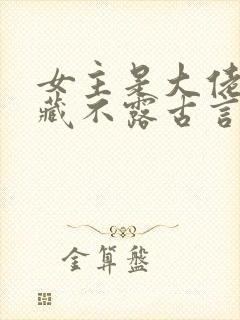 女主是大佬
藏不露古言
金算盘